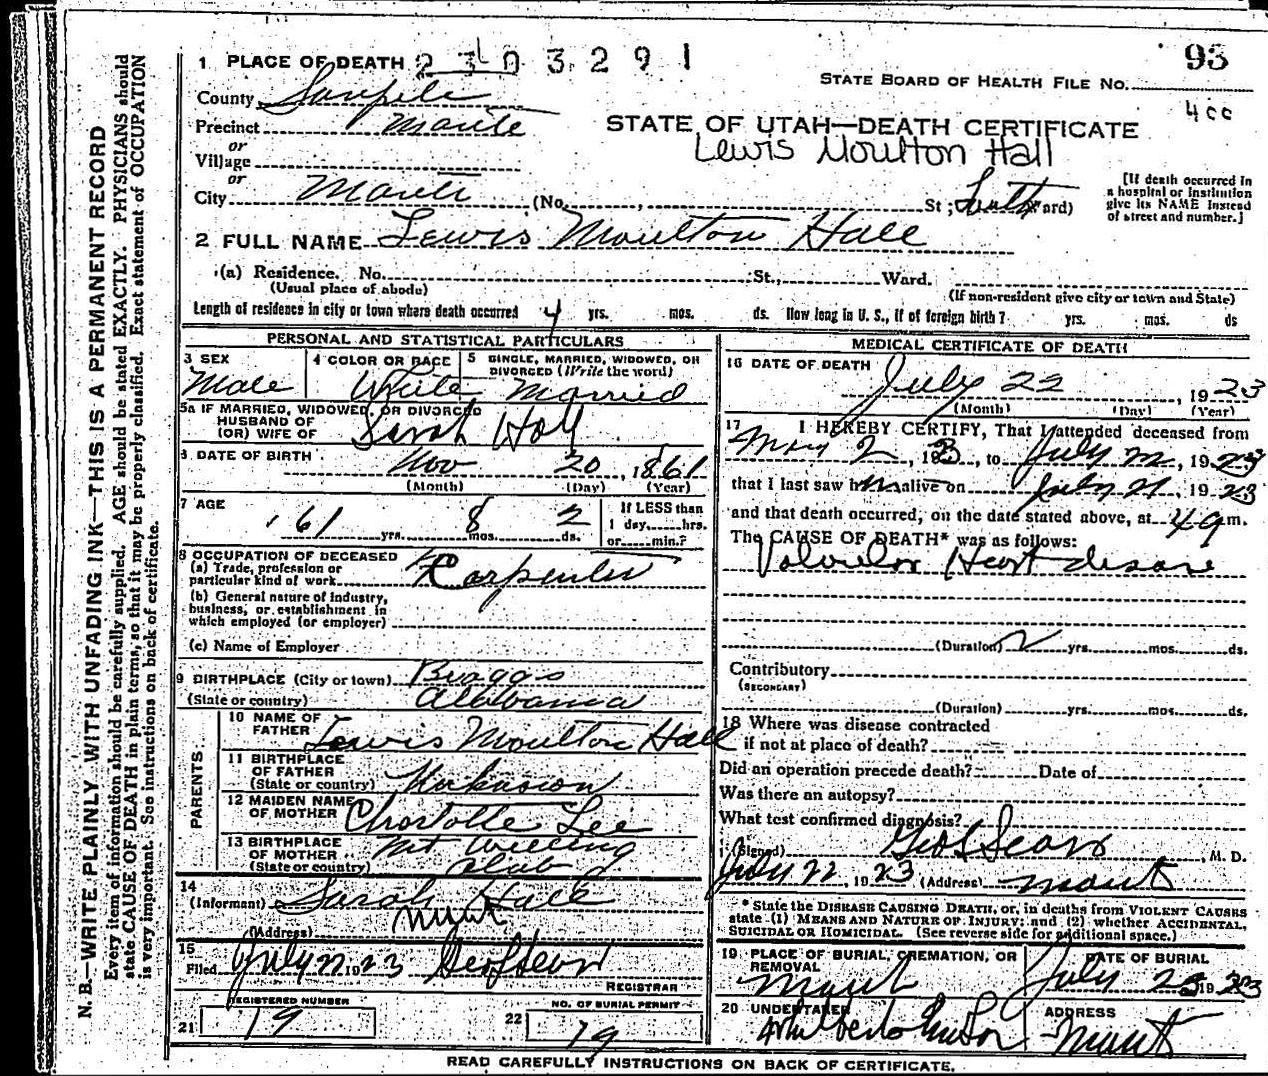 93
1 PLACE OF DEATH 2303291
STATE BOARD OF HEALTH FILE No.
County Sanpete
4cc
Precinct Manti
STATE OF UTAH—DEATH CERTIFICATE
or
Lewis Moulton Hall
Village
or
City Manti (No. , St; South Ward)
[If death occurred in
a hospital or institution
give its NAME instead
of street and number.]
2 FULL NAME Lewis Moulton Hall
(a) Residence. No. St., Ward.
(Usual place of abode)
(If non-resident give city or town and State)
Length of residence in city or town where death occurred 4 yrs. mos. ds. How long in U. S., if of foreign birth? yrs. mos. ds
PERSONAL AND STATISTICAL PARTICULARS
3 SEX
Male
4 COLOR OR RACE
White
5 SINGLE, MARRIED, WIDOWED, OR
DIVORCED (Write the word)
Married
5a IF MARRIED, WIDOWED, OR DIVORCED
HUSBAND OF
(OR) WIFE OF Sarah Hall
6 DATE OF BIRTH
Nov 20, 1861
(Month) (Day) (Year)
7 AGE
61 yrs. 8 mos. 2 ds.
If LESS than
1 day, hrs.
or min.?
8 OCCUPATION OF DECEASED
(a) Trade, profession or
particular kind of work Carpenter
(b) General nature of industry,
business, or establishment in
which employed (or employer)
(c) Name of Employer
9 BIRTHPLACE (City or town) Braggs
(State or country) Alabama
PARENTS
10 NAME OF
FATHER Lewis Moulton Hall
11 BIRTHPLACE
OF FATHER
(State or country)
12 MAIDEN NAME
OF MOTHER Charlotte Lee
13 BIRTHPLACE
OF MOTHER Mt Willing
(State or country) Alab
14
(Informant) Sarah Hall
(Address) Manti
15
Filed July 22 1923
REGISTRAR
REGISTERED NUMBER
21 19
NO. OF BURIAL PERMIT
22 19
MEDICAL CERTIFICATE OF DEATH
16 DATE OF DEATH
July 22, 1923
(Month) (Day) (Year)
17 I HEREBY CERTIFY, That I attended deceased from
May 2, 1923, to July 22, 1923
that I last saw him alive on July 21, 1923
and that death occurred, on the date stated above, at 4 a m.
The CAUSE OF DEATH* was as follows:
Valvular Heart disease
(Duration) 2 yrs. mos. ds.
Contributory
(SECONDARY)
(Duration) yrs. mos. ds.
18 Where was disease contracted
if not at place of death?
Did an operation precede death? Date of
Was there an autopsy?
What test confirmed diagnosis?
(Signed) , M. D.
July 22, 1923 (Address) Manti
* State the DISEASE CAUSING DEATH, or, in deaths from VIOLENT CAUSES
state (1) MEANS AND NATURE OF INJURY; and (2) whether ACCIDENTAL,
SUICIDAL OR HOMICIDAL. (See reverse side for additional space.)
19 PLACE OF BURIAL, CREMATION, OR
REMOVAL
Manti
DATE OF BURIAL
July 1923
20 UNDERTAKER
ADDRESS
Manti
READ CAREFULLY INSTRUCTIONS ON BACK OF CERTIFICATE.
N. B.—WRITE PLAINLY WITH UNFADING INK—THIS IS A PERMANENT RECORD
Every item of information should be carefully supplied. AGE should be stated EXACTLY. PHYSICIANS should
state CAUSE OF DEATH in plain terms, so that it may be properly classified. Exact statement of OCCUPATION
is very important. See instructions on back of certificate.